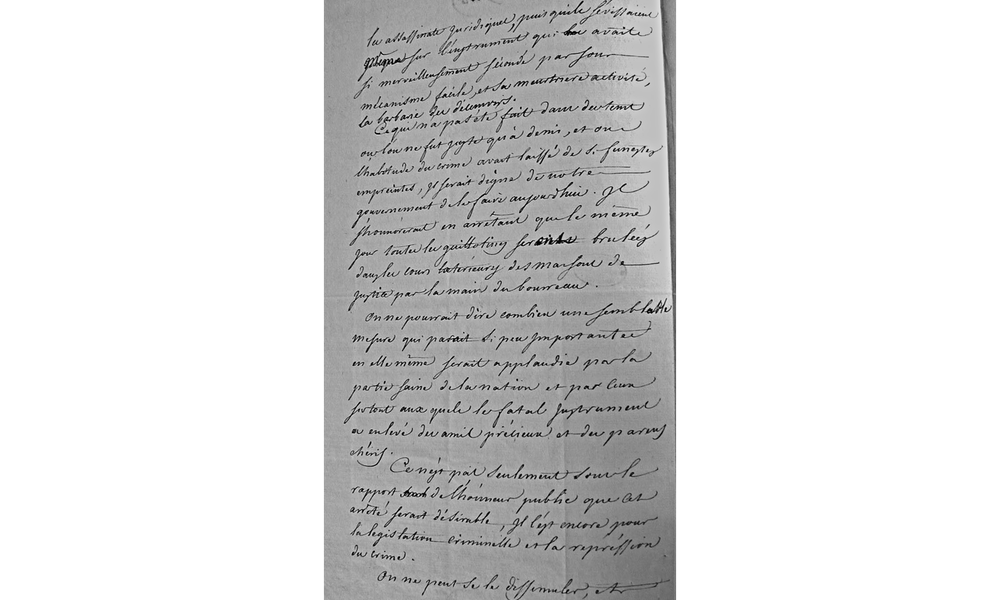 les assassinats juridiques, puis qu'ils sévissaient
même sur l'instrument qui les avait
si merveilleusement sécondé par son
mécanisme facile, et sa meurtriere activité,
la barbarie des décemvirs.
Ce qui n'a pas été fait dans des tems
où l'on ne fut juste qu'à demi, et où
l'habitude du crime avait laissé de si funestes
empreintes, il serait digne de notre
gouvernement de le faire aujourd'hui. Il
s'honnorerait en arrêtant que le même
jour toutes les guillotines seraient brulées
dans les cours extérieures des maisons de
justice par la main du bourreau.
On ne pourrait dire combien une semblable
mesure qui parait si peu importante
en elle même serait applaudie par la
partie saine de la nation et par ceux
surtout aux quels le fatal instrument
a enlevé des amis précieux et des parens
chéris.
Ce n'est pas seulement sous le
rapport de l'honneur public que cet
arrêté serait désirable, il l'est encore pour
la legislation criminelle et la représsion
du crime.
On ne peut se le dissimuler, et